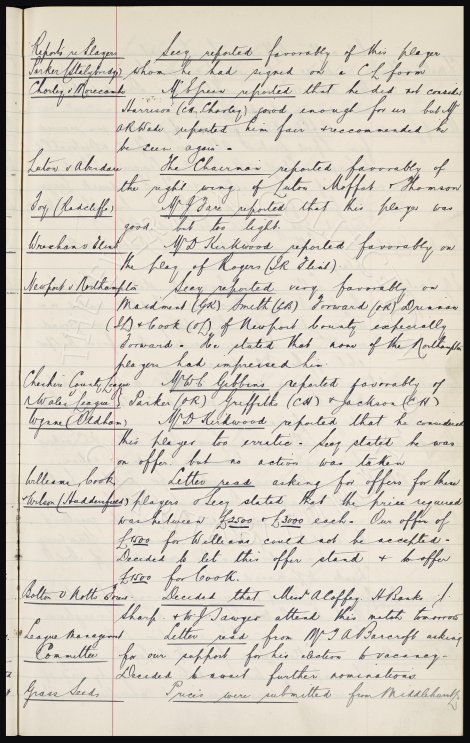 Reports re Players Secy reported favorably of this player
Parker (Stalybridge) whom he had signed on a C.L. form
Chorley v Morecambe Mr Green reported that he did not consider
Harrison (CH. Chorley) good enough for us but Mr
Wade reported him fair & recommended he
be seen again -
Luton v Aberdare The Chairman reported favorably of
the right wing of Luton Moffat & Thomson
Joy (Radcliffe) Mr J Fare reported that this player was
good but too light.
Wrexham v Flint Mr D Kirkwood reported favorably on
the play of Rogers (IR Flint)
Newport v Northampton Secy reported very favorably on
Maidment (GK) Smith (CR) Forward (OR) Drinnan
(IL) & Cook (OL) of Newport County especially
Forward - He stated that none of the Northampton
players had impressed him.
Cheshire County League Mr W C Gibbins reported favorably of
v Wales League Parker (OR) Griffiths (CH) & Jackson (CH)
Wynne (Oldham) Mr D Kirkwood reported that he considered
this player too erratic - Secy stated he was
on offer but no action was taken
Williams, Cook, Letter read asking for offers for these
Wilson (Huddersfield) players & Secy stated that the price required
was between £2500 & £3000 each - Our offer of
£1500 for Williams could not be accepted -
Decided to let this offer stand & to offer
£1500 for Cook.
Bolton v Notts Fors. Decided that Messrs A Coffey, H Banks J.
Sharp & W J Sawyer attend this match tomorrow
League Management Letter read from Mr T A Barcroft asking
Committee for our support for his election to vacancy -
Decided to await further nominations
Grass Seeds Prices were submitted from Middlehurst